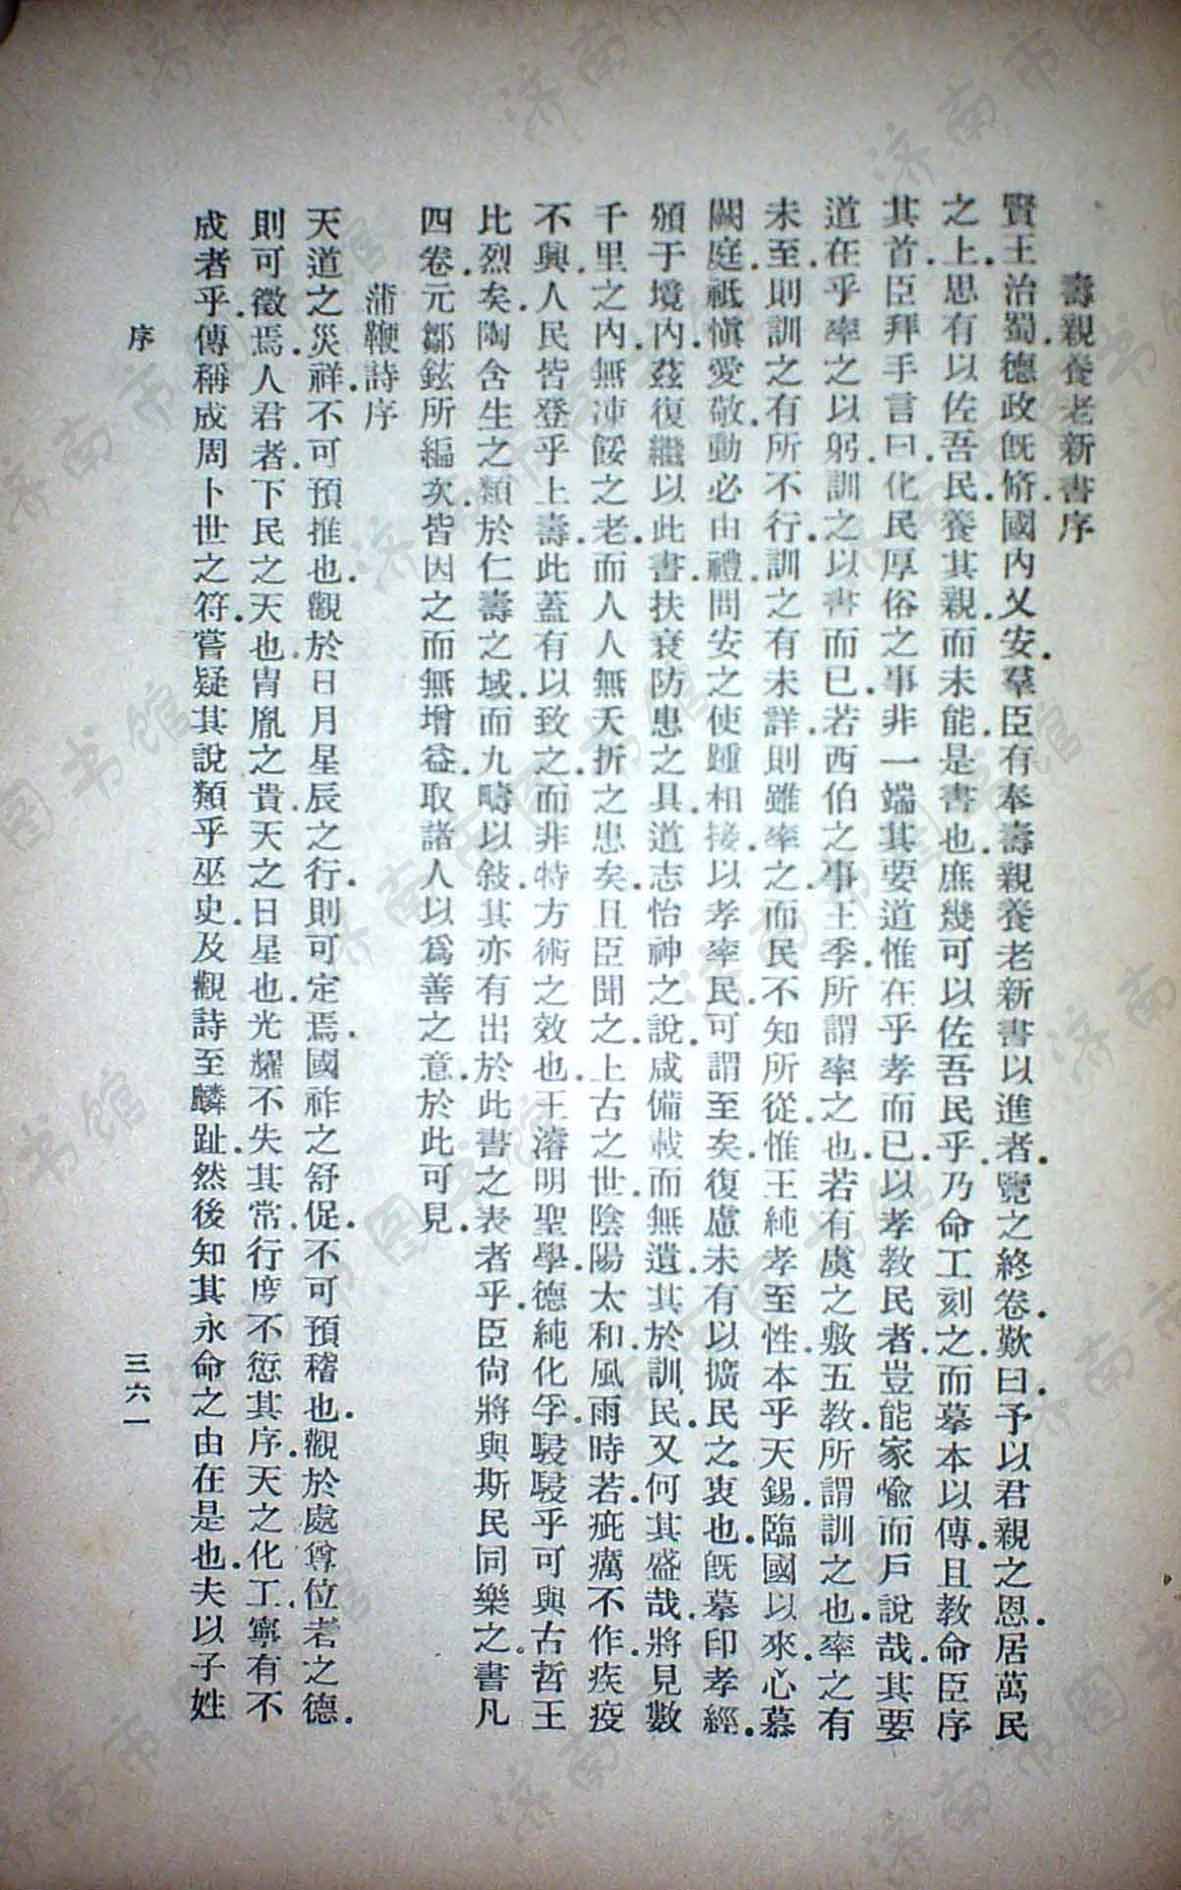 壽親養老新書序
賢王治蜀.德政旣脩.國內乂安.羣臣有奉壽親養老新書以進者.覽之終卷.歎曰.予以君親之恩.居萬民
之上.思有以佐吾民.養其親而未能.是書也.庶幾可以佐吾民乎.乃命工刻之.而墓本以傳.且教命臣序
其首.臣拜手言曰.化民厚俗之事.非一端.其要道惟在乎孝而已.以孝教民者.豈能家愉而戶說哉.其要
道在乎率之以躬.訓之以書而已.若西伯之事王季.所謂率之也.若有虞之敷五教.所謂訓之也.率之有
未至.則訓之有所不行.訓之有未詳.則雖率之.而民不知所從.惟王純孝至性.本乎天錫.臨國以來.心慕
闕庭.祗愼愛敬.動必由禮.問安之使.踵相接.以孝率民.可謂至矣.復慮未有以擴民之衷也.旣摹印孝經.
頒于境內.茲復繼以此書.扶衰防患之具.道志怡神之說.咸備載而無遺.其於訓民.又何其盛哉.將見數
千里之內.無凍餒之老.而人人無夭折之患矣.且臣聞之.上古之世.陰陽太和.風雨時若.疵癘不作.疾疫
不興.人民皆登乎上壽.此蓋有以致之.而非特方術之效也.王濬明聖學.德純化孚.駸駸乎可與古哲王
比烈矣.陶含生之類.於仁壽之域.而九疇以敍.其亦有出於此書之表者乎.臣尙將與斯民同樂之.書凡
四卷.元鄒鉉所編次.皆因之而無增益.取諸人以爲善之意.於此可見.
蒲鞭詩序
天道之災祥.不可預推也.觀於日月星辰之行.則可定焉.國祚之舒促.不可預稽也.觀於處尊位者之德.
則可徵焉.人君者.下民之天也.冑胤之貴.天之日星也.光耀不失其常.行度不愆其序.天之化工.寧有不
成者乎.傳稱成周卜世之符.嘗疑其說類乎巫史.及觀詩至麟趾.然後知其永命之由在是也.夫以子姓
序
三六一
济南市图书馆